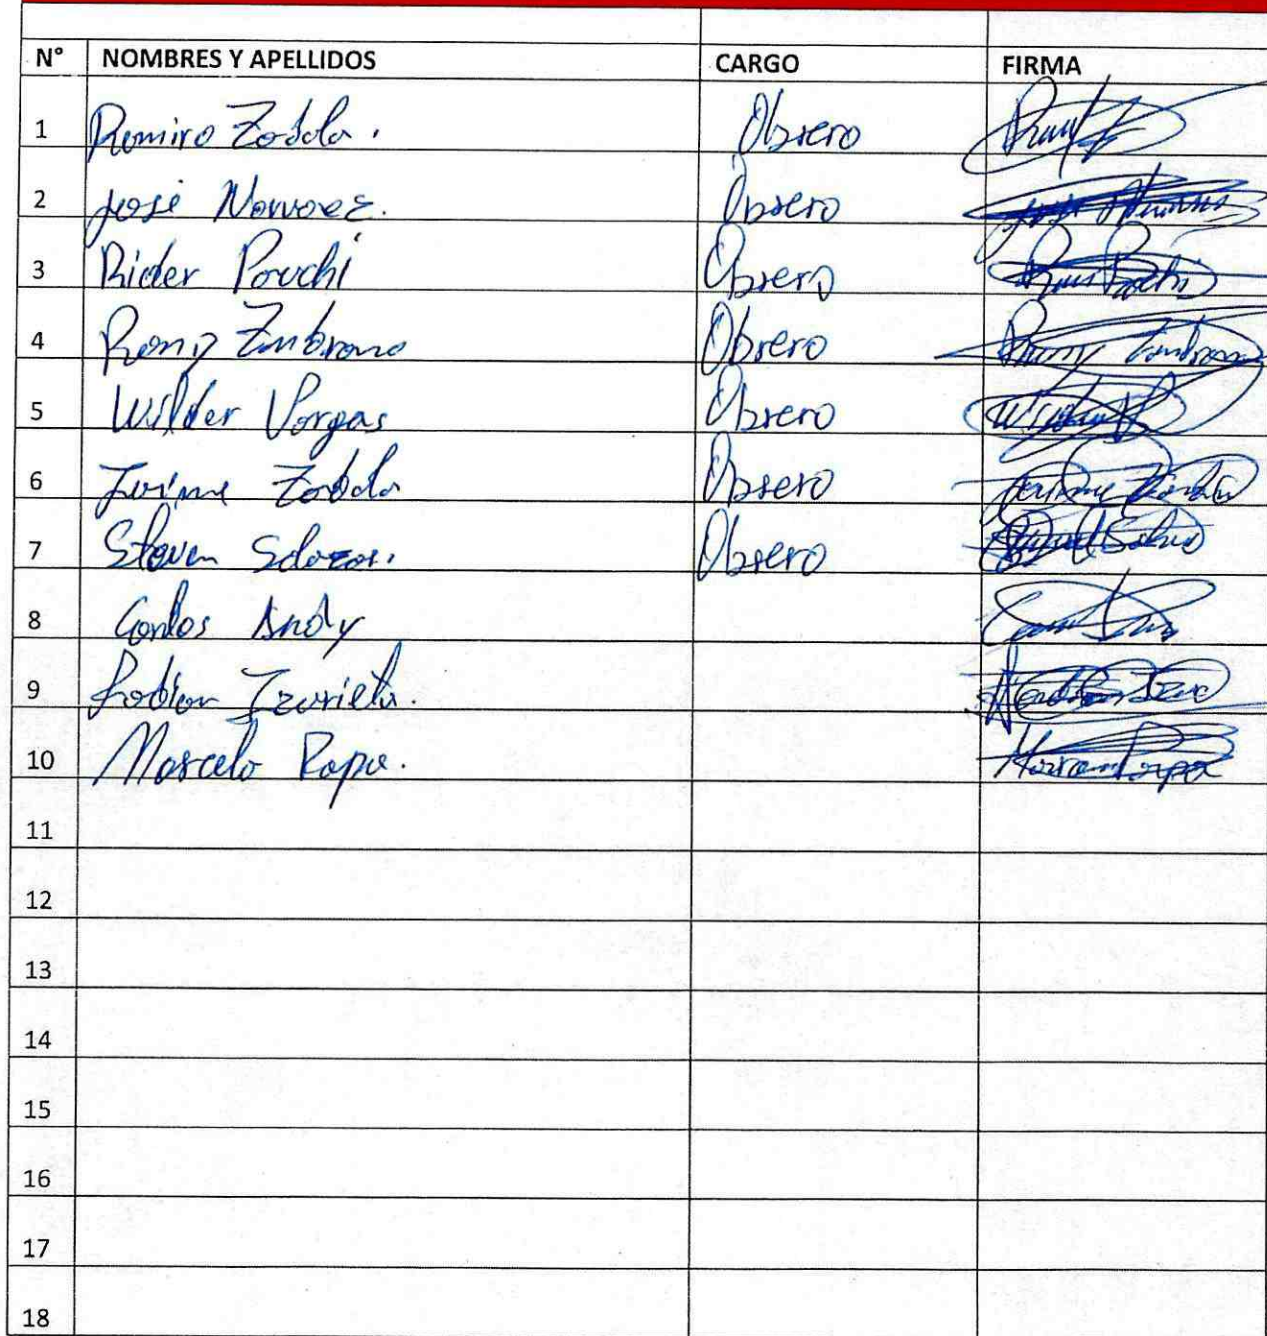 N° NOMBRES Y APELLIDOS CARGO FIRMA
1 Ramiro Zabala. Obrero
2 José Narvaez. Obrero
3 Rider Pauchi Obrero
4 Romy Zambrano Obrero
5 Wilder Vargas Obrero
6 Jaime Zabala Obrero
7 Steven Salazar. Obrero
8 Carlos Andy
9 Fabian Izurieta.
10 Marcelo Papa.
11
12
13
14
15
16
17
18